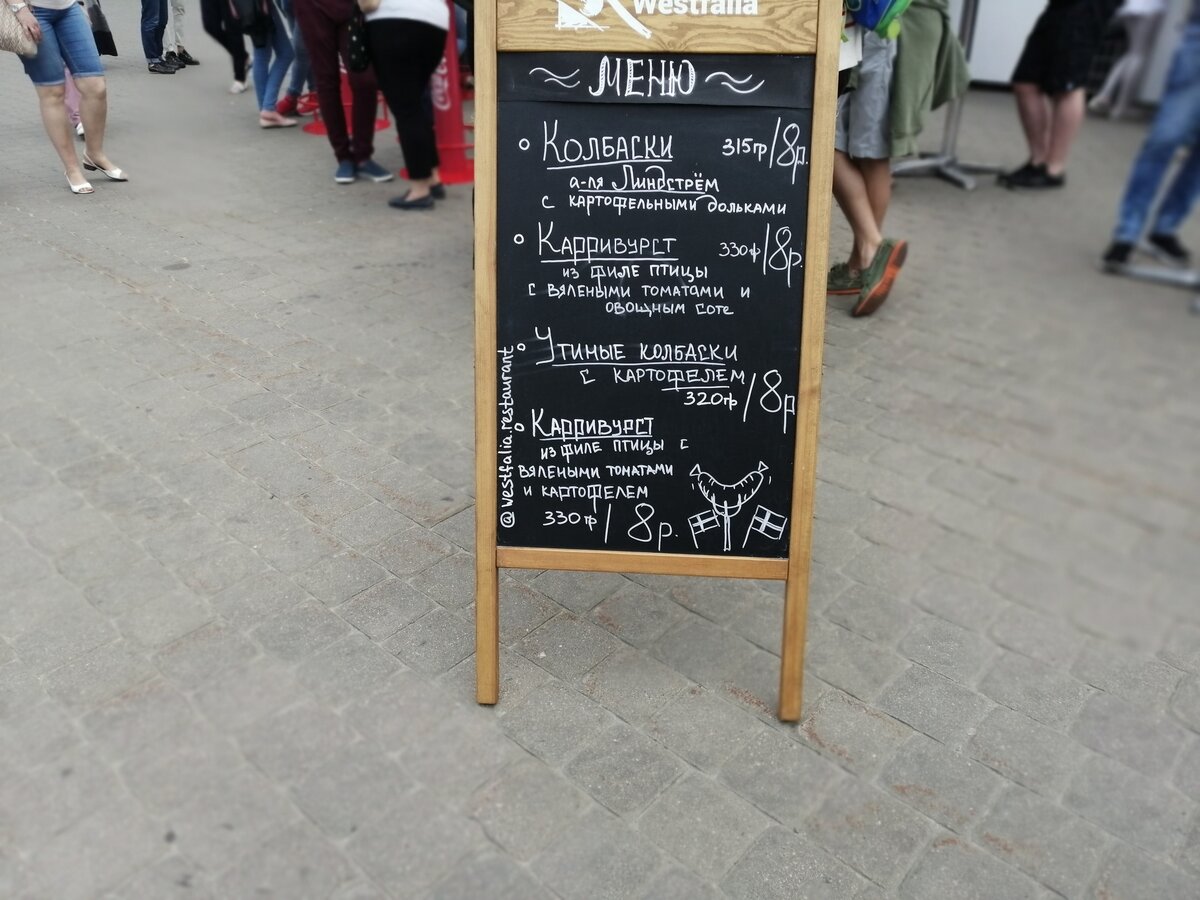 Westfalia
МЕНЮ
Колбаски 315гр/8р.
а-ля Линдстрём
с картофельными дольками
Карривурст 330гр/8р.
из филе птицы
с вялеными томатами и
овощным соте
Утиные колбаски
с картофелем
320гр/8р
Карривурст
из филе птицы с
вялеными томатами
и картофелем
330гр/8р.
@westfalia.restaurant
Coca